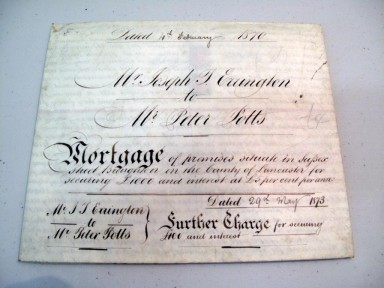 Dated 4th February 1870
Mr Joseph T. Errington
to
Mr Peter Potts
Mortgage of premises situate in Sussex
Street, in the County of Lancaster for
securing £1000 and interest at £5 per cent per annum
Dated 29th May 1873
Mr J T Errington
to
Mr Peter Potts
Further Charge for securing
£100 and interest